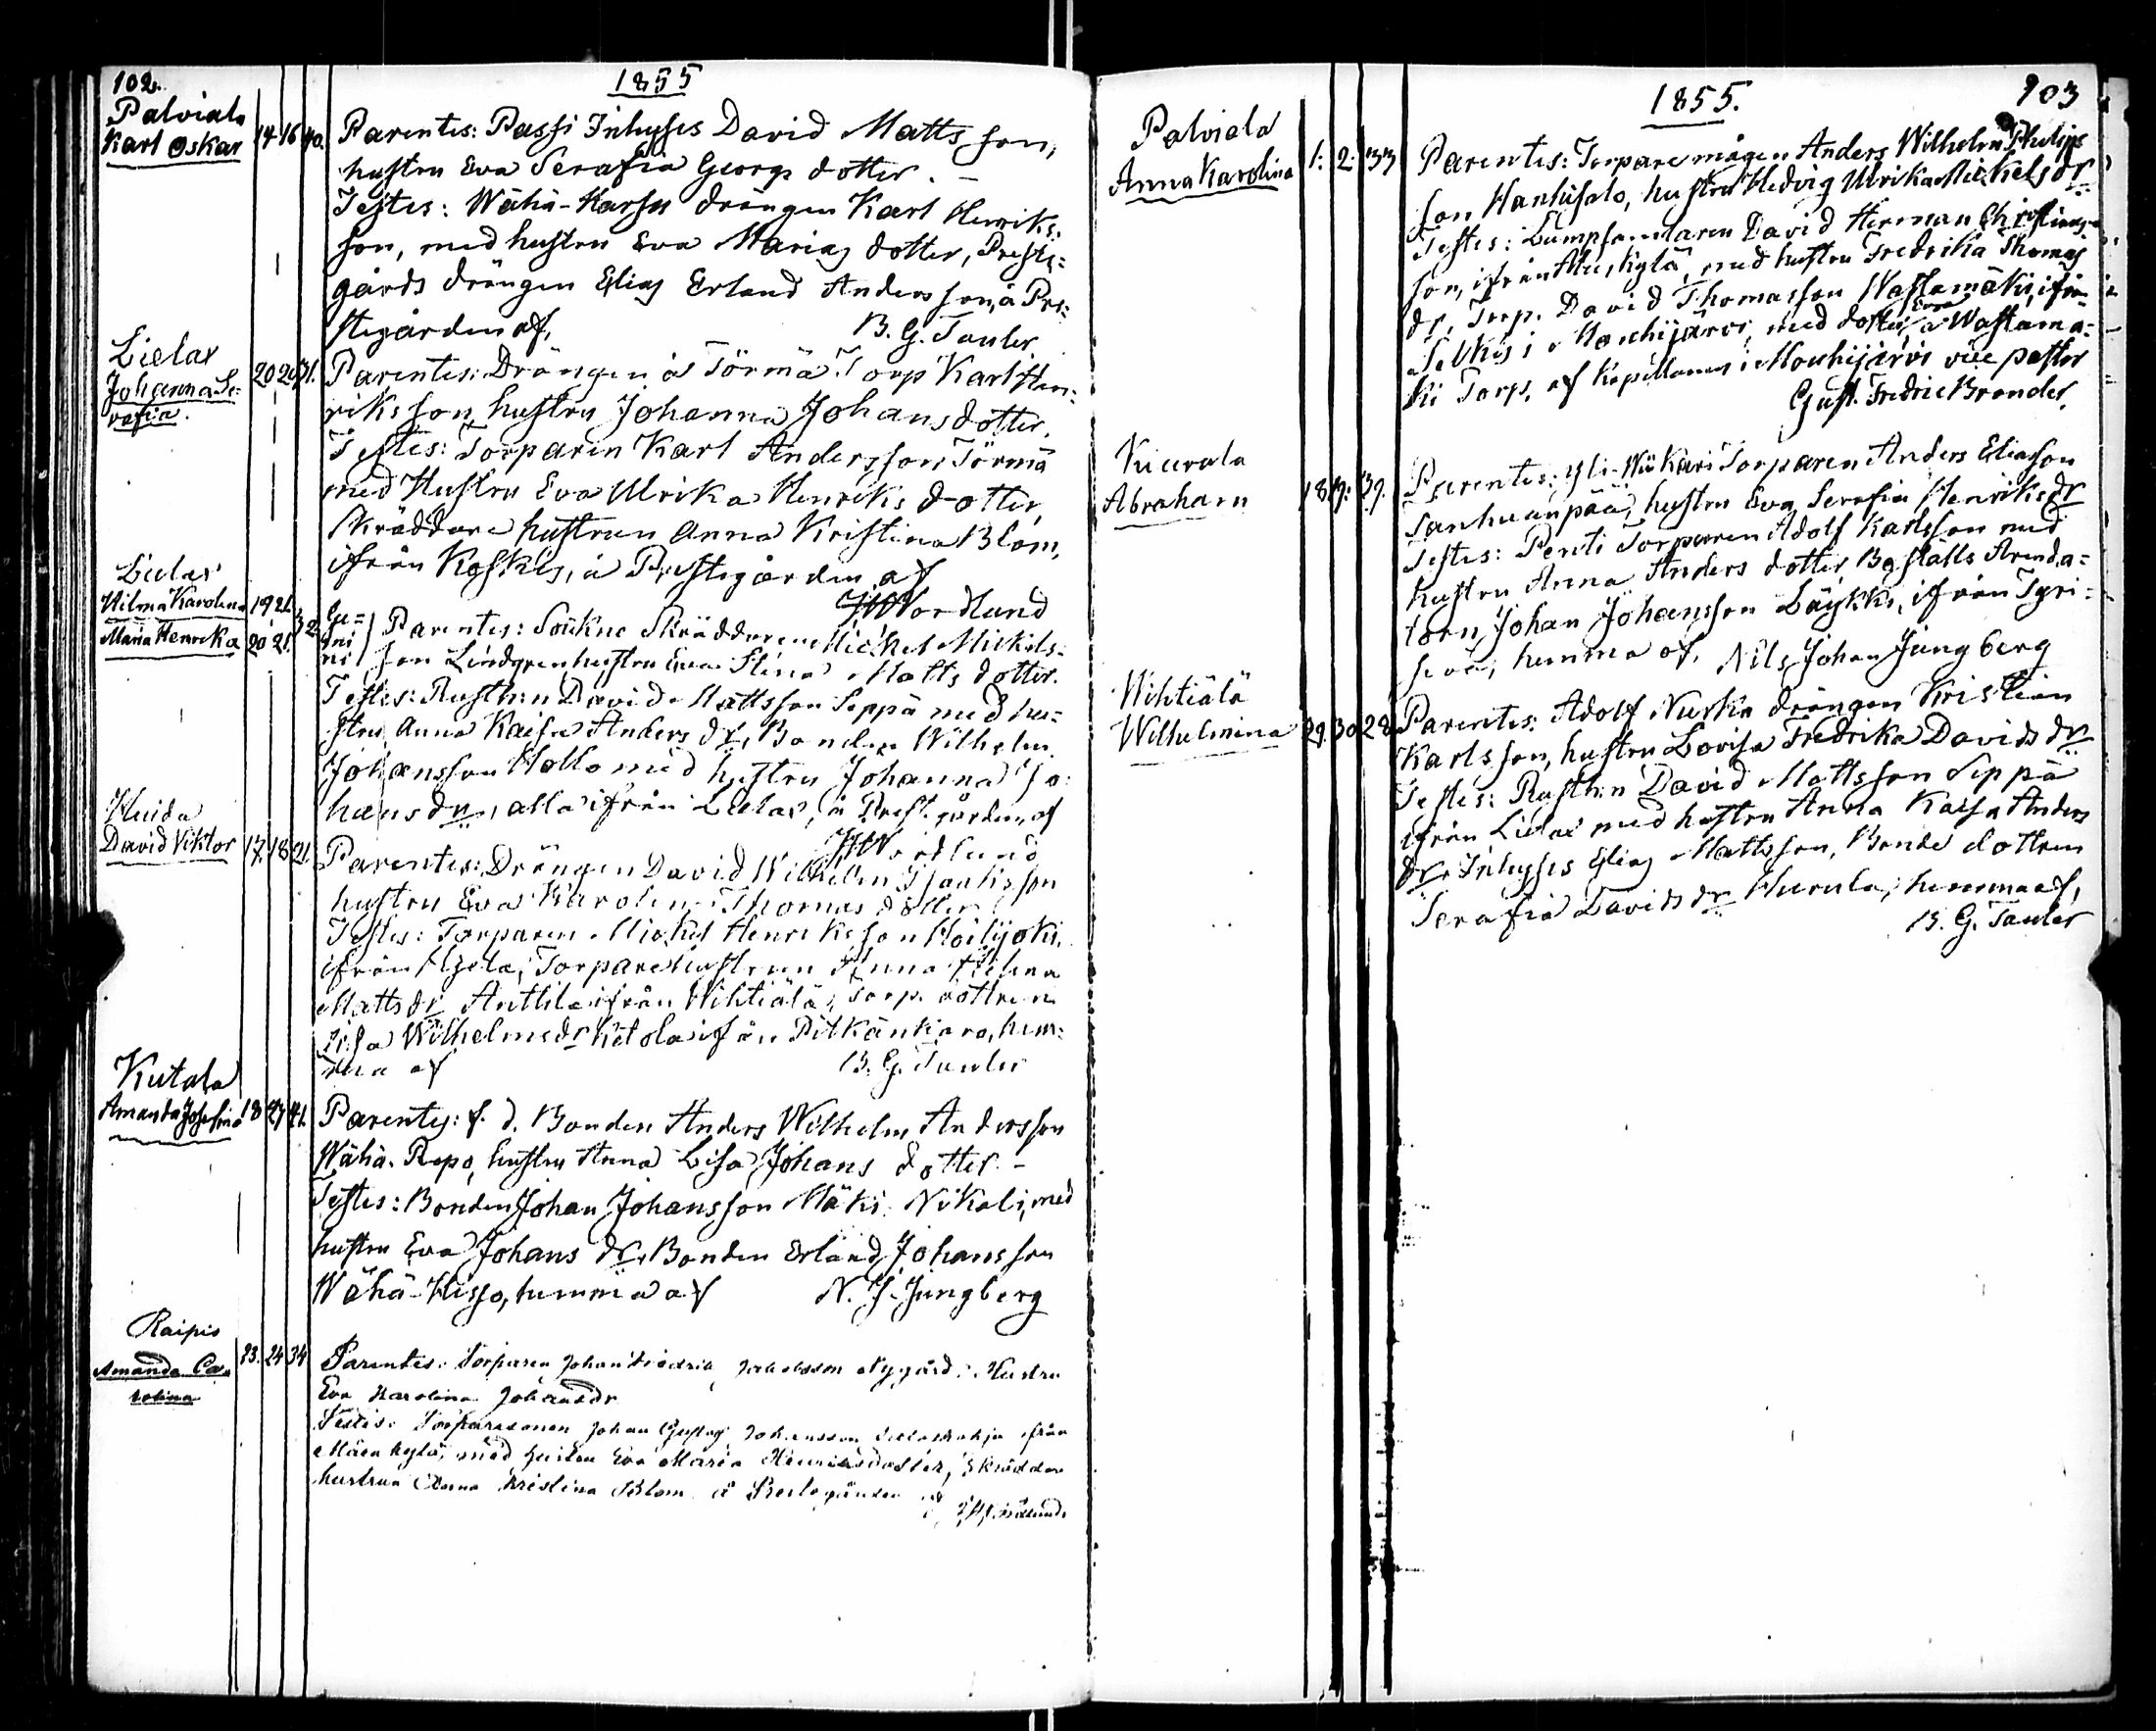 102.
1855
Palviala
Karl Oskar 14 16 40. Parentes: Passi Inhyses David Matts son,
hustru Eva Serafia Georgs dotter. –
Testes: Wähä-Karsu drängen Karl Henriks:
son, med hustru Eva Marias dotter, Preste:
gårds drängen Elias Erland Andersson, å Pre:
stegården af, B. G. Tauler
Lielax
Johanna Se:
rafia. 20 21 31. Parentes: Drängen å Törmä Torp Karl Hen:
riksson, hustru Johanna Johansdotter.
Testes: Torparen Karl Andersson Törmä
med Hustru Eva Ulrika Henriks dotter,
Skräddare hustrun Anna Kristina Blom,
ifrån Koskis, å Prestegården af
Nordlund
Lielax
Hilma Karolina 19 21.
Maria Henrika 20 21. 32 Ge=
mi
ni Parentes: Sockne Skräddaren Mickel Mickels:
son Lindgren, hustru Eva Stina Matts dotter.
Testes: Rusth:n David Mattsson Seppä med hu=
stru Anna Kaisa Anders dr, Bonden Wilhelm
Johansson Hollo med hustru Johanna Jo:
hans dr, alla ifrån Lielax, å Prest.gården, af
Nordlund
Huida
David Viktor 17. 18 21. Parentes: Drängen David Wilhelm Isaaksson
hustru Eva Karolina Thomas dotter
Testes: Torparen Mickel Henriksson Hoilijoki,
ifrån Torparehustrun Anna Helena
Matts dr Anttila ifrån Wihtiälä, Torp. dottren
Wilhelmsdr Ketola ifrån Pitkänkara, hem:
ma af B. G. Tauler
Kutala
Amanda Josefina 18 21. Parentes: f. d. Bonden Anders Wilhelm Andersson
Wähä-Repo, hustru Anna Lisa Johans dotter –
Testes: Bonden Johan Johansson Mäki-Nikali, med
hustru Eva Johans dr, Bonden Erland Johansson
Wähä-Hisso, hemma af N. J. Jungberg
Raipio
Amanda Ca=
rolina 23. 24 34 Parentes: Torparen Johan Fredrik Jakobsson Nygård, Hustru
Eva Karolina Johansdr
Testes: Torparesonen Johan Gustaf Johansson ifrån
kylä, med hustru Eva Maria Henriksdotter, Skräddare
hustrun Anna Kristina Blom å Prestegården af Nordlund
1855.
103
Palviala
Anna Karolina 1. 2. 33 Parentes: Torparemågen Anders Wilhelm Philips
son Hanhisalo, hustru Hedvig Ulrika Mickelsdr
Testes: Lumpsamlaren David Herman Christians=
son, ifrån kylä, med hustru Fredrika Thomas
dr, Torp. David Thomasson Wastamäki, ifrån
Selkis i Mouhijärvi, med dotter Eva å Wastamä=
ki Torp, af Kapellanen i Mouhijärvi vice pastor
Gust. Fredric Brander.
Kuerala
Abraham 18 19. 39. Parentes: Yli-Wikari Torparen Anders Eliasson
Tanhuanpää, hustru Eva Serafia Henriksdr
Testes: Penti Torparen Adolf Karlsson med
hustru Anna Anders dotter, Boställs Arenda=
torn Johan Johansson Läykki, ifrån Tyri=
hemma af, Nils Johan Jungberg
Wihtiälä
Wilhelmina 29. 30 28. Parentes: Adolf Nurka drängen Kristian
Karlsson, hustru Lovisa Fredrika Davids dr
Testes: Rusth:n David Mattsson Seppä
ifrån Lielax med hustru Anna Kaisa Anders
dr, Inhyses Elias Mattsson, Bonde dottren
Serafia Davids dr Hurula, hemma af,
B. G. Tauler